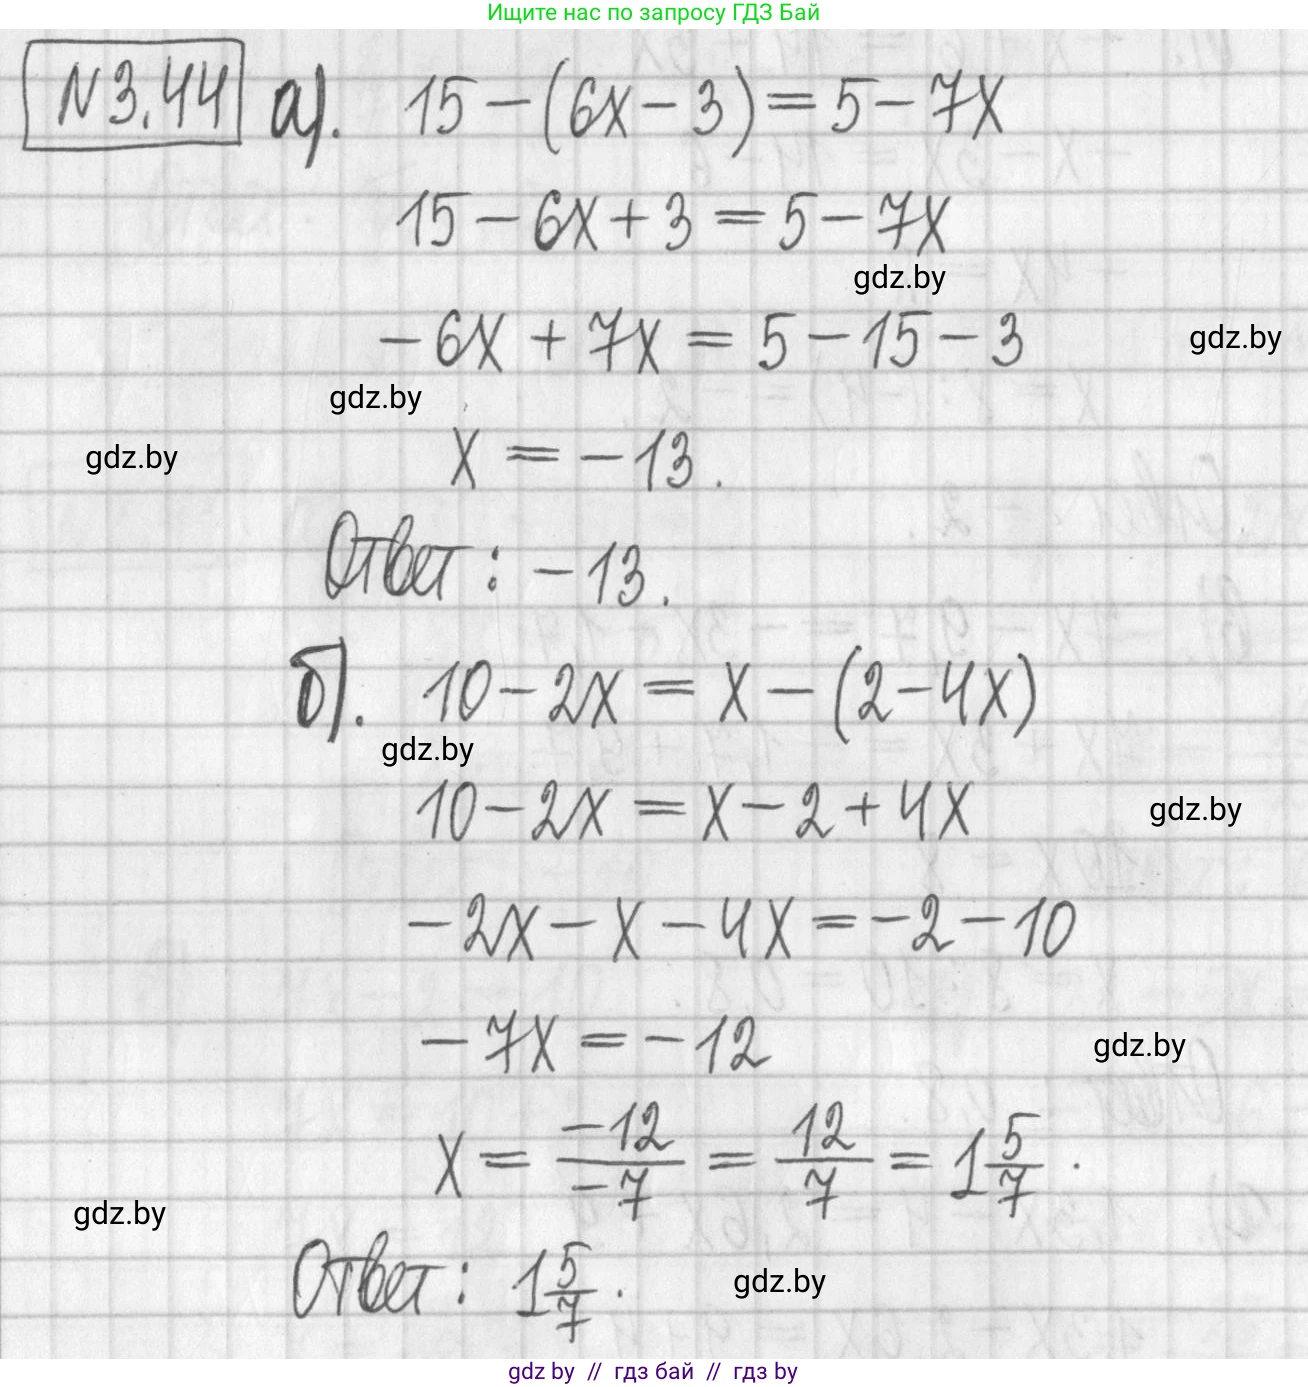 Ищите нас по запросу ГДЗ Бай
N3.44 а). 15-(6x-3)=5-7x
15-6x+3=5-7x
gdz.by
-6x+7x=5-15-3
gdz.by
gdz.by
x=-13.
gdz.by
Ответ: -13.
б). 10-2x=x-(2-4x)
gdz.by
10-2x=x-2+4x
gdz.by
-2x-x-4x=-2-10
-7x=-12
gdz.by
x=\frac{-12}{-7}=\frac{12}{7}=1\frac{5}{7}.
gdz.by
Ответ: 1\frac{5}{7}.
gdz.by
gdz by // гдз бай // гдз by